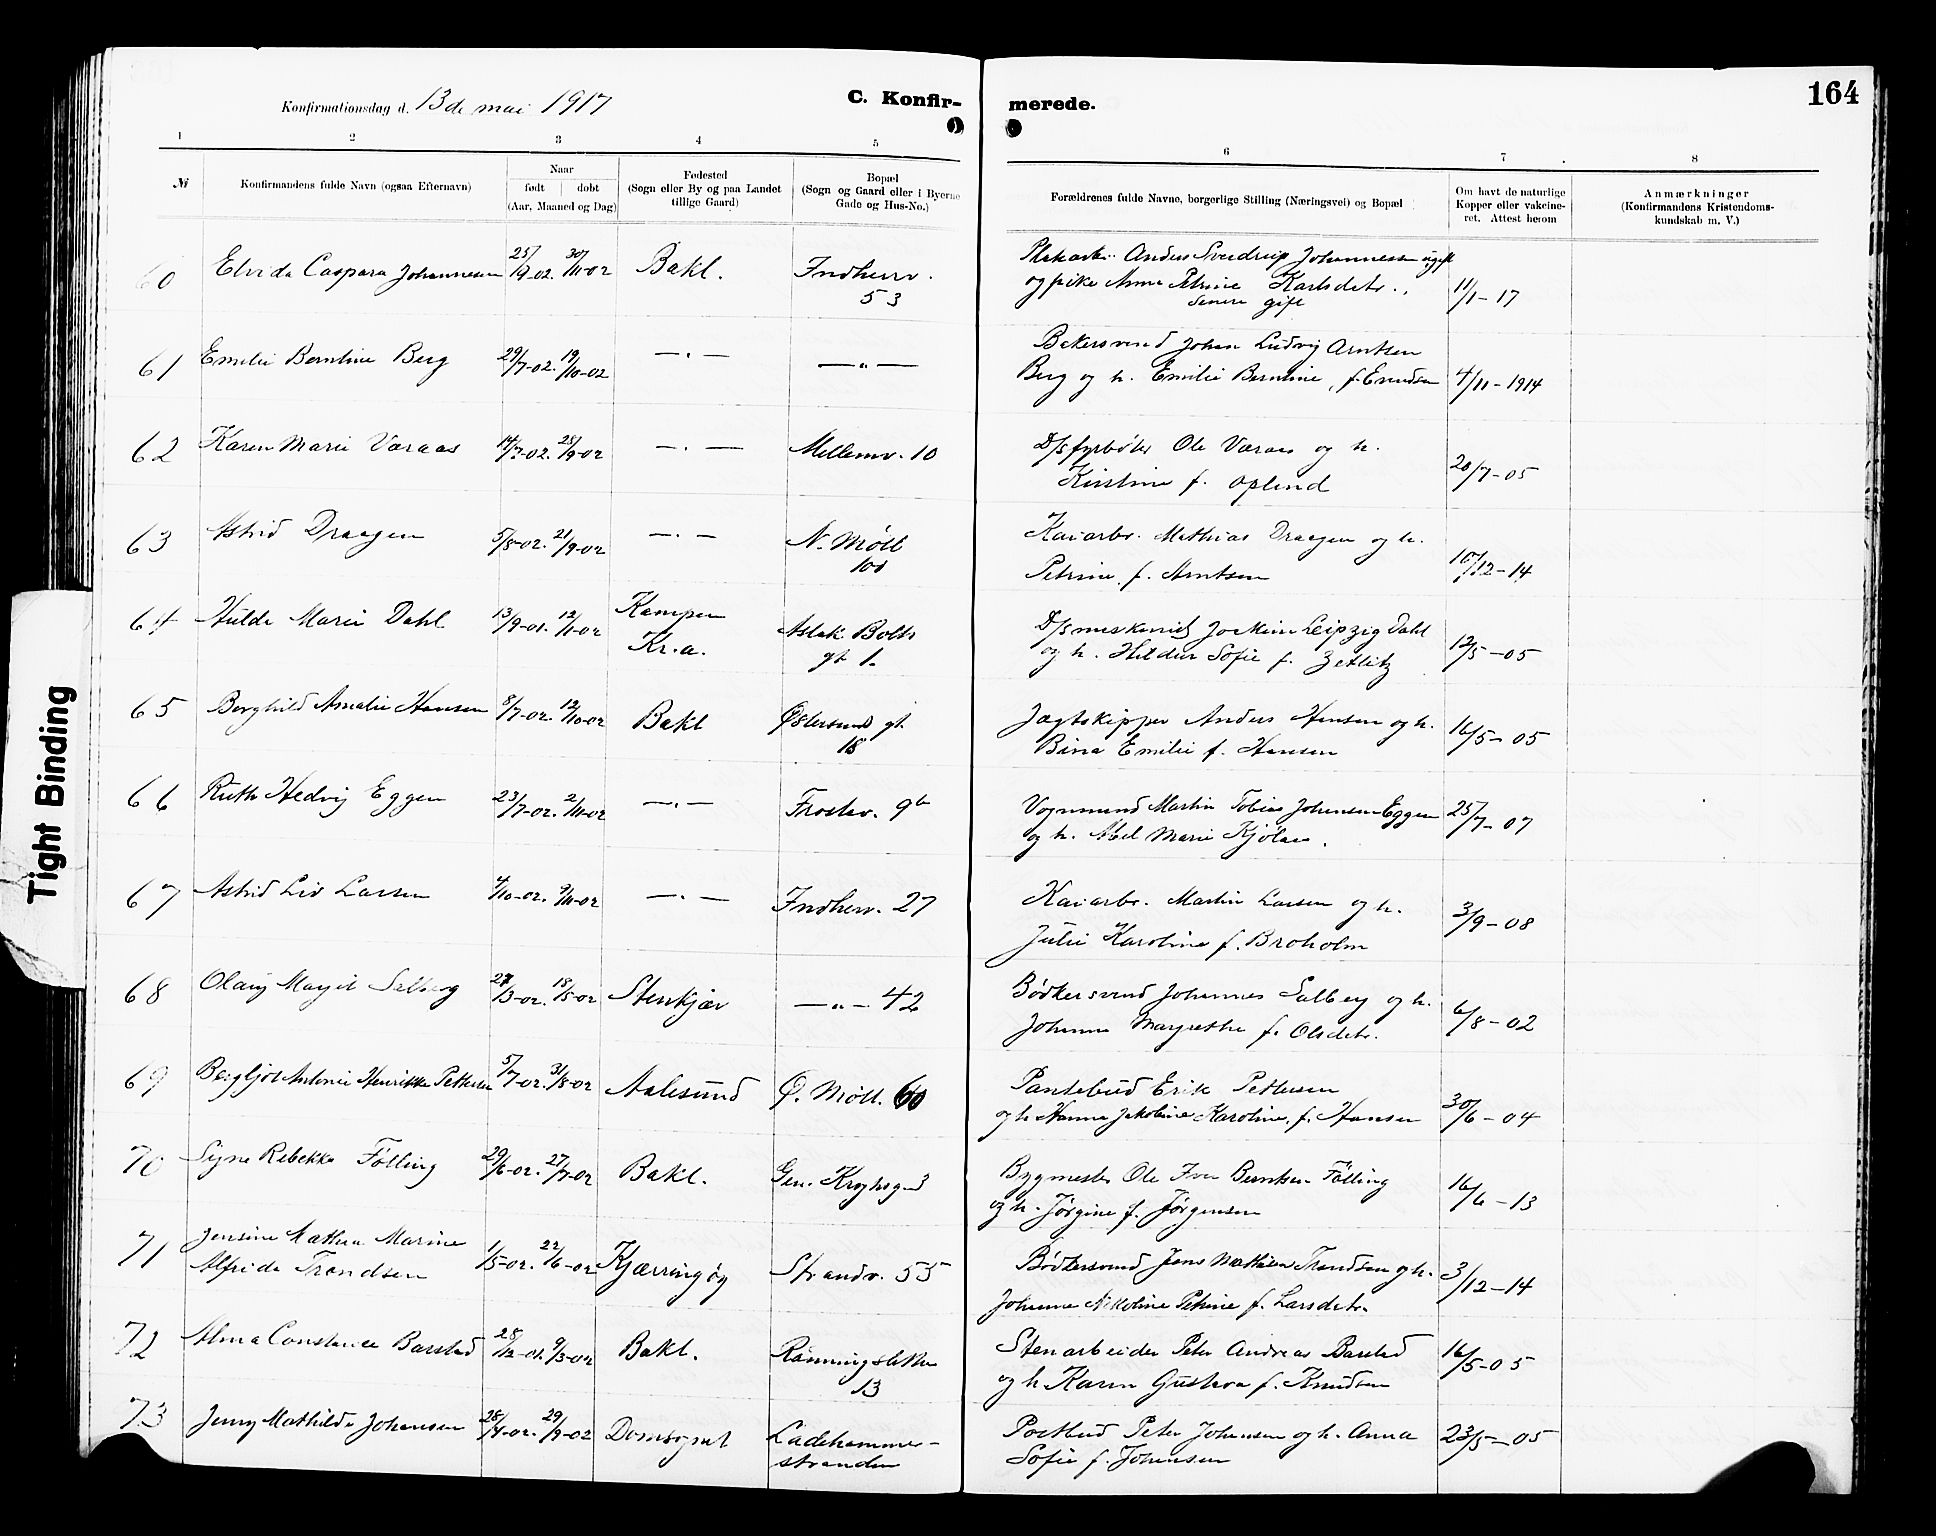 164
Konfirmationsdag d. 13de mai 1917
C. Konfir-
merede.
1 2 3 4 5 6 7 8
№
Konfirmandens fulde Navn (ogsaa Efternavn)
Naar
født døbt
(Aar, Maaned og Dag)
Fødested
(Sogn eller By og paa Landet
tillige Gaard)
Bopæl
(Sogn og Gaard eller i Byerne
Gade og Hus-No.)
Forældrenes fulde Navne, borgerlige Stilling (Næringsvei) og Bopæl
Om havt de naturlige
Kopper eller vakcine-
ret. Attest herom
Anmærkninger
(Konfirmandens Kristendoms-
kundskab m. V.)
60 Elvida Caspara Johannesen 25/9-02. 30/11-02 Bakl. Indherrv.
53
Anders Sverdrup Johannesen ugift
og pike Anna Petrine Karlsdatr.,
senere gift
11/1-17
61 Emilie Berntine Berg 29/7-02. 19/10-02 —„— —„—
Bakersvend Johan Ludvig Arntsen
Berg og h. Emilie Berntine, f. Enudsen 4/11-1914
62 Karen Marie Væraas 14/7-02. 28/9-02 —„— Mellemv. 10
D/sfyrbøter Ole Væraas og h.
Kirstine f. Oplend
20/7-05
63 Astrid Draagen 5/8-02. 21/9-02 —„— N. Møll
100
Kaiarbr. Mathias Draagen og h.
Petrine f. Arntsen
10/12-14
64 Hulda Marie Dahl 13/9-01. 12/11-02 Kampen
Kr.a.
Aslak Bolts
gt 1.
D/smaskinist Joakim Leipzig Dahl
og h. Hildur Sofie f. Zetlitz
12/5-05
65 Borghild Amalie Hansen 8/7-02. 12/10-02 Bakl Østersund gt.
18
Jagtskipper Anders Hansen og h.
Bina Emilie f. Hansen
16/5-05
66 Ruth Hedvig Eggen 23/7-02. 2/11-02 —„— Frostav. 9b
Vognmand Martin Tobias Johansen Eggen
og h. Abel Marie Kjølaas.
25/7-07
67 Astrid Liv Larsen 4/10-02. 9/11-02 —„— Indherv. 27
Kaiarbr. Martin Larsen og h.
Julie Karoline f. Broholm
3/9-08
68 Olaug Margit Salberg 27/3-02. 18/5-02 Stenkjær —„— 42
Bødkersvend Johannes Salberg og h.
Johanna Margrethe f. Olsdatr.
6/8-02
69 Bergljot Antonie Henrikke Pettersen 5/7-02. 31/8-02 Aalesund Ø. Møll. 60
Pantebud Erik Pettersen
og h Hanna Jakobine Karoline f. Hansen 30/6-04
70 Signe Rebekka Følling 29/6-02. 27/7-02 Bakl. Gen. Kroghsg 3
Bygmester Ole Iver Berntsen Følling
og h. Jørgine f. Jørgensen
16/6-13
71 Jensine Mathea Marine
Alfrida Trondsen 1/5-02. 22/6-02 Kjærringøy Strandv. 55
Bødkersvend Jens Mathias Trondsen og h.
Johanna Nikoline Petrine f. Larsdatr.
3/12-14
72 Alma Constance Barstad 28/12-01. 9/3-02 Bakl. Rønningsletta
13
Stenarbeider Peter Andreas Barstad
og h Karen Gustava f. Knudsen
16/5-05
73 Jenny Mathilde Johansen 28/4-02. 29/9-02 Domsognet Ladehammer-
stranden
Postbud Peter Johansen og h. Anna
Sofie f. Johansen
23/5-05
Tight Binding